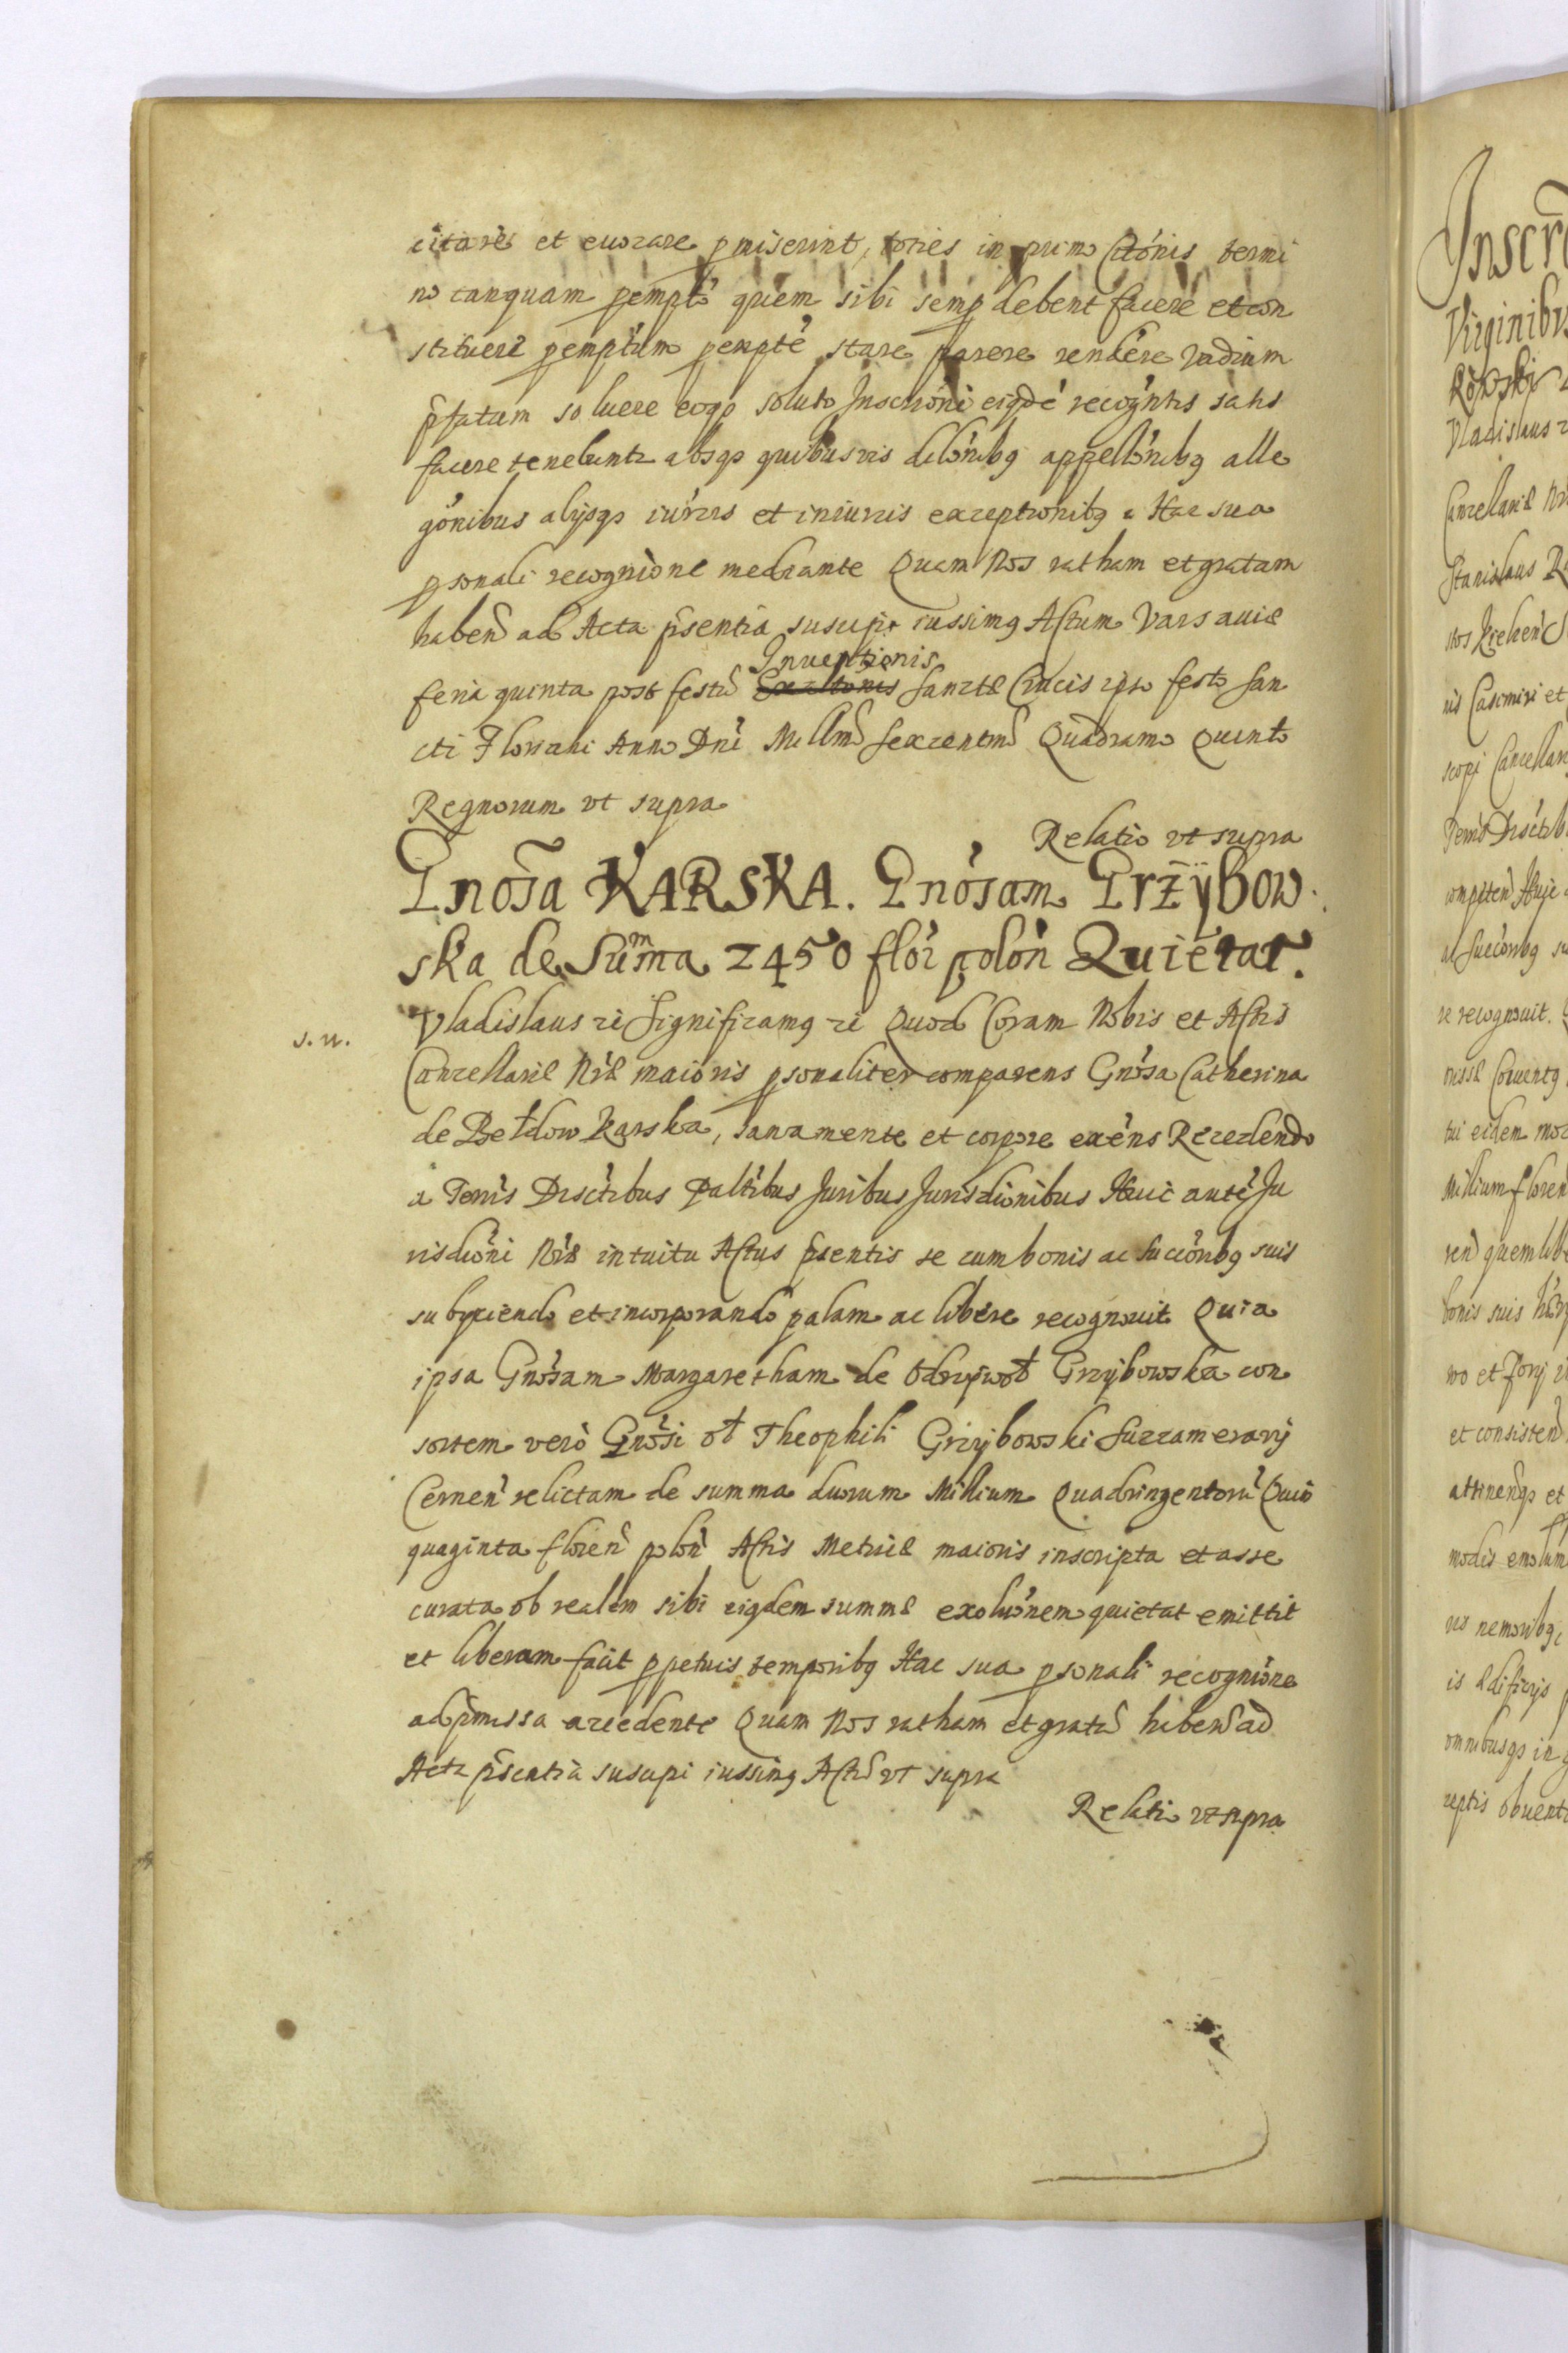 citare et euocare pmiserint, toties in primo Ctónis termi
no tanquam pemptó quem sibi semp debent facere et con
stituere pemptúm pemptè stare parere rendére vadium
pfatum soluere eoqs soluto Inscrióni eiqdé recogńtis satis
facere tenebuntr absqs quibusvis dilónibq appellónibq alle
gónibus alijsqs iúrzis et iniuriis exceptionibq Hac sua
psonali recognióne mediante Quam Nos ratham et gratam
haben ad Acta psentia suscipi iussimq Actum Varsauiæ
Inuentionis
feria quinta post festũ Exaltonis Sanctæ Crucis ipso festo San
cti Floriani Anno Dni Millmõ Sexcentmõ Quadramo Quinto
Regnorum vt supra
Relatio vt supra
Gnosa KARSKA. Gnósam Grzÿbow
ska de Suma 2450 flor polon Quietat.
s. n.
Vladislaus zc Significamq zc Quod Coram Nobis et Actis
Cancellariæ Nræ maioris psonaliter comparens Gnósa Catherina
de Bełdow Karska, sana mente et corpore exéns Recedendo
à Terris Disctibus Paltibus Juribus Jurisdionibus Huic auté Ju
risdióni Nræ intuitu Actus psentis se cum bonis ac Succónibq suis
subyciendo et incorporando palam ac libere recognouit Quia
ipsa Gnósam Margaretham de Odrzywoł Grzybowska con
sortem verò Gnósi oł Theophili Grzybowski Succamerarij
Cernen relictam de summa duorum Millium Quadringentorũ Quin
quaginta floren polon Actis Metricæ maioris inscripta et asse
curata ob realem sibi eiqdem summæ exolucónem quietat emittit
et liberam facit ppetuis temporibq Hac sua psonali recognióne
ad pmissa accedente Quam Nos ratham et gratũ haben ad
Acta psentia suscipi iussimq Actũ vt supra
Relatio vt supra
Inscr
Virginibus
Rowski
Vladislaus
Cancellariæ
Stanislaus
nis Casimiri et
scopi Cancellar
Terris Disctib
competen Huic
ac Succonibq su
re recognouit.
tui eidem
Millium floren
ren quemlib
bonis suis
et consisten
attinenqs et
modis emolum
nemoribq
is ædificijs
omnibusqs in
ceptis obuent